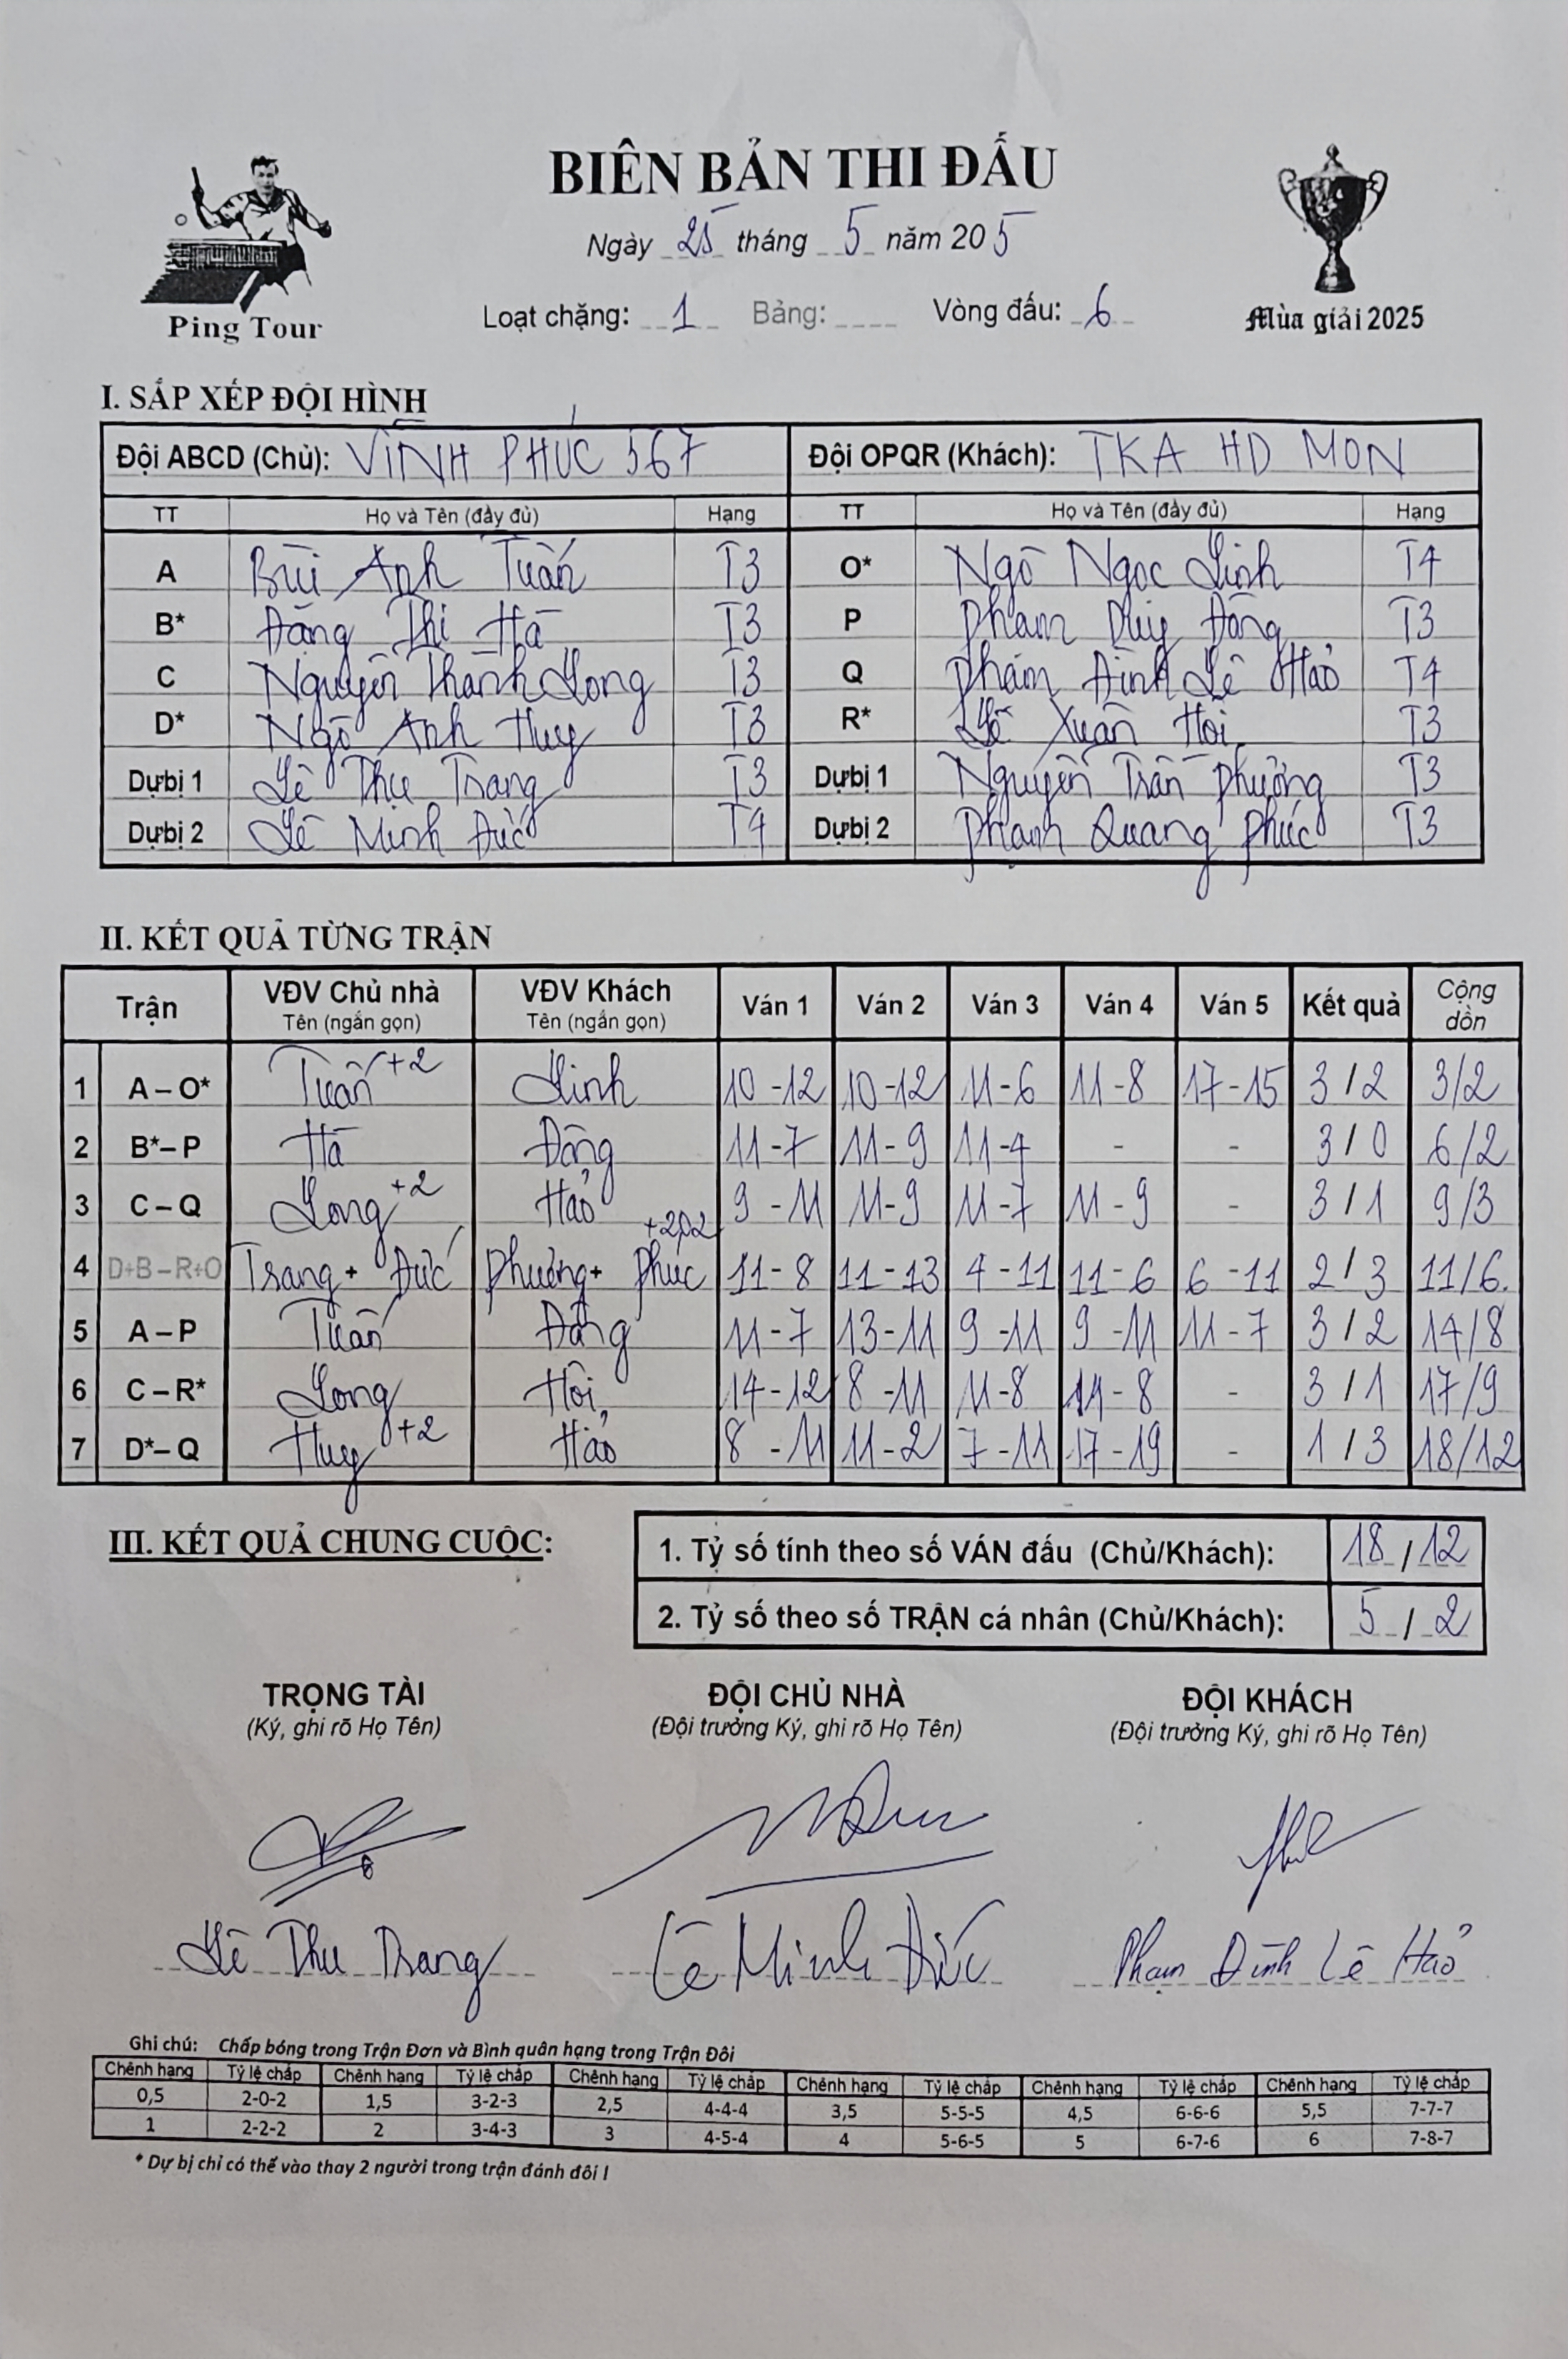 BIÊN BẢN THI ĐẤU
Ngày 25 tháng 5 năm 20 5
Loạt chặng: 1 Bảng: Vòng đấu: 6
Ping Tour
Mùa giải 2025
I. SẮP XẾP ĐỘI HÌNH
Đội ABCD (Chủ): VĨNH PHÚC 567 Đội OPQR (Khách): TKA HD MON
TT Họ và Tên (đầy đủ) Hạng TT Họ và Tên (đầy đủ) Hạng
A Bùi Anh Tuấn T3 O* Ngô Ngọc Linh T4
B* Đặng Thị Hà T3 P Phạm Duy Đông T3
C Nguyễn Thành Long T3 Q Phạm Đình Lê Hảo T4
D* Ngô Anh Huy T3 R* Lê Xuân Hòi T3
Dự bị 1 Lê Thu Trang T3 Dự bị 1 Nguyễn Trần Phưởng T3
Dự bị 2 Lê Minh Đức T4 Dự bị 2 Phạm Quang Phúc T3
II. KẾT QUẢ TỪNG TRẬN
Trận VĐV Chủ nhà VĐV Khách Ván 1 Ván 2 Ván 3 Ván 4 Ván 5 Kết quả Cộng dồn
Tên (ngắn gọn) Tên (ngắn gọn)
1 A – O* Tuấn +2 Linh 10-12 10-12 11-6 11-8 17-15 3 / 2 3/2
2 B* – P Hà Đông 11-7 11-9 11-4 - - 3 / 0 6/2
3 C – Q Long +2 Hảo 9-11 11-9 11-7 11-9 - 3 / 1 9/3
4 D+B – R+O Trang + Đức Phưởng + Phúc +2,0,2 11-8 11-13 4-11 11-6 6-11 2 / 3 11/6.
5 A – P Tuấn Đông 11-7 13-11 9-11 9-11 11-7 3 / 2 14/8
6 C – R* Long Hòi 14-12 8-11 11-8 11-8 - 3 / 1 17/9
7 D* – Q Huy +2 Hảo 8-11 11-2 7-11 17-19 - 1 / 3 18/12
III. KẾT QUẢ CHUNG CUỘC:
1. Tỷ số tính theo số VÁN đấu (Chủ/Khách): 18 / 12
2. Tỷ số theo số TRẬN cá nhân (Chủ/Khách): 5 / 2
TRỌNG TÀI ĐỘI CHỦ NHÀ ĐỘI KHÁCH
(Ký, ghi rõ Họ Tên) (Đội trưởng Ký, ghi rõ Họ Tên) (Đội trưởng Ký, ghi rõ Họ Tên)
Lê Thu Trang Lê Minh Đức Phạm Đình Lê Hảo
Ghi chú: Chấp bóng trong Trận Đơn và Bình quân hạng trong Trận Đôi
Chênh hạng Tỷ lệ chấp Chênh hạng Tỷ lệ chấp Chênh hạng Tỷ lệ chấp Chênh hạng Tỷ lệ chấp Chênh hạng Tỷ lệ chấp Chênh hạng Tỷ lệ chấp
0,5 2-0-2 1,5 3-2-3 2,5 4-4-4 3,5 5-5-5 4,5 6-6-6 5,5 7-7-7
1 2-2-2 2 3-4-3 3 4-5-4 4 5-6-5 5 6-7-6 6 7-8-7
* Dự bị chỉ có thể vào thay 2 người trong trận đánh đôi !